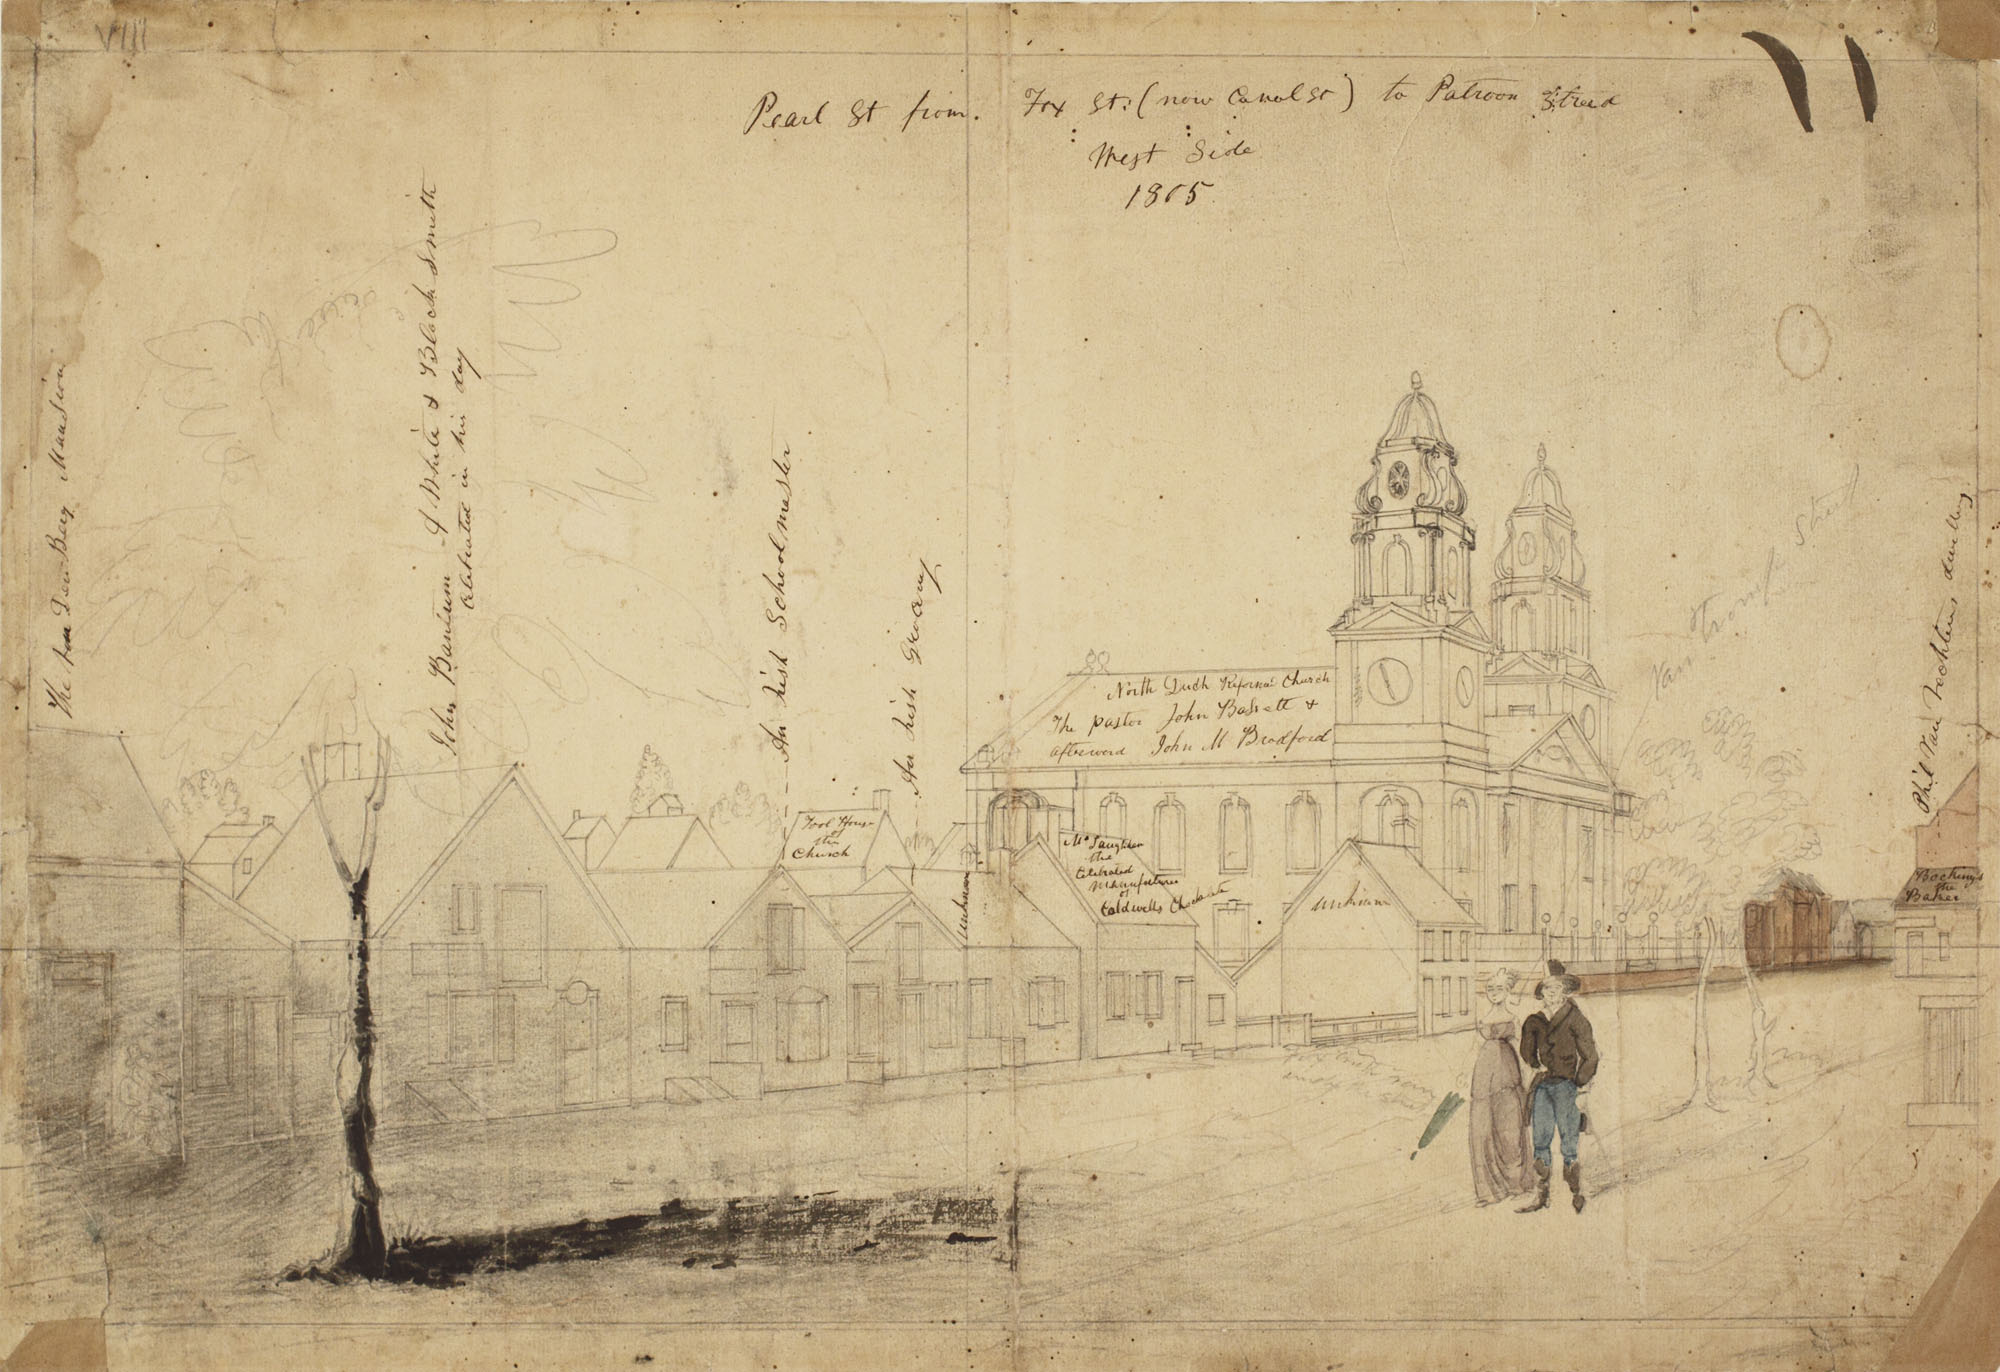 VIII
Pearl St from. Fox St: (now Canal St) to Patroon Street
West Side
1805
The Van Den Berg Mansion
John Barnium
White & Black Smith
Celebrated in his day
An Irish Schoolmaster
An Irish Grocery
Tool House
of the
Church
North Dutch Reformd Church
The pastor John Bassett &
afterward John M Bradford
unknown
the
Celebrated
Manufacturer
of
Caldwells Chocolate
unknown
Van Tromp Street
Phil Van Vechtens dwelling
the
Baker